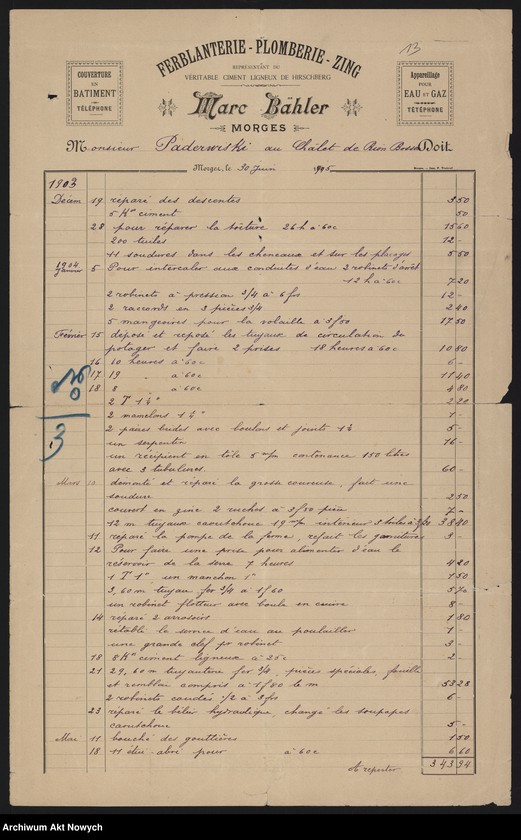 13
FERBLANTERIE - PLOMBERIE - ZING
REPRÉSENTANT DU
VÉRITABLE CIMENT LIGNEUX DE HIRSCHBERG
COUVERTURE
EN
BATIMENT
TÉLÉPHONE
Appareillage
POUR
EAU ET GAZ
TÉTÉPHONE
Marc Bähler
MORGES
Monsieur Paderewski au Châlet de Rion Bosson Doit.
Morges, le 30 Juin 1905
1903
Décem 19 réparé des descentes 3 50
5 Kos ciment 50
28 pour réparer la toiture 26 h à 60 c 15 60
200 tuiles 12 -
11 soudures dans les cheneaux et sur les placages 5 50
1904
Janvier 5 Pour intercaler aux conduites d'eau 2 robinets d'arrêt
12 h à 60 c 7 20
2 robinets à pression 3/4 à 6 frs 12 -
2 raccords en 3 pièces 3/4 2 40
5 mangeoires pour la volaille à 3 f 50 17 50
Février 15 déposé et reposé les tuyaux de circulation du
potager et faire 2 prises 18 heures à 60 c 10 80
16 10 heures à 60 c 6 -
17 19 " à 60 c 11 40
18 8 " à 60 c 4 80
2 T 1 1/4" 2 20
2 mamelons 1 1/4" 1 -
2 paires brides avec boulons et joints 1 1/4 5 -
un serpentin 16 -
un récipient en tôle 5 m/m contenance 150 litres
avec 3 tubulures 60 -
Mars 10 démonté et réparé la grosse couveuse, fait une
soudure 2 50
couvert en zinc 2 ruches à 3 f 50 pièce 7 -
12 m tuyaux caoutchouc 19 m/m intérieur 3 toiles à 3/20 38 40
11 réparé la pompe de la ferme, refait les garnitures 3 -
12 Pour faire une prise pour alimenter d'eau le
réservoir de la serre 7 heures 4 20
1 T 1" un manchon 1" 1 50
3,60 m tuyau fer 3/4 à 1 f 60 5 76
un robinet flotteur avec boule en cuivre 8 -
14 réparé 2 arrosoirs 1 80
rétabli le service d'eau au poulailler 1 -
une grande clef pr robinet 3 -
18 8 Kos ciment ligneux à 25 c 2 -
21 29,60 m tuyauterie fer 3/4, pièces spéciales, fouille
et remblai compris à 1 f 80 le m 53 28
2 robinets coudés 1/2 à 3 frs 6 -
23 réparé le bélier hydraulique, changé les soupapes
caoutchouc 5 -
Mai 11 bouché des gouttières 1 50
18 11 pour à 60 c 6 60
A reporter 343 94
3/03
Archiwum Akt Nowych